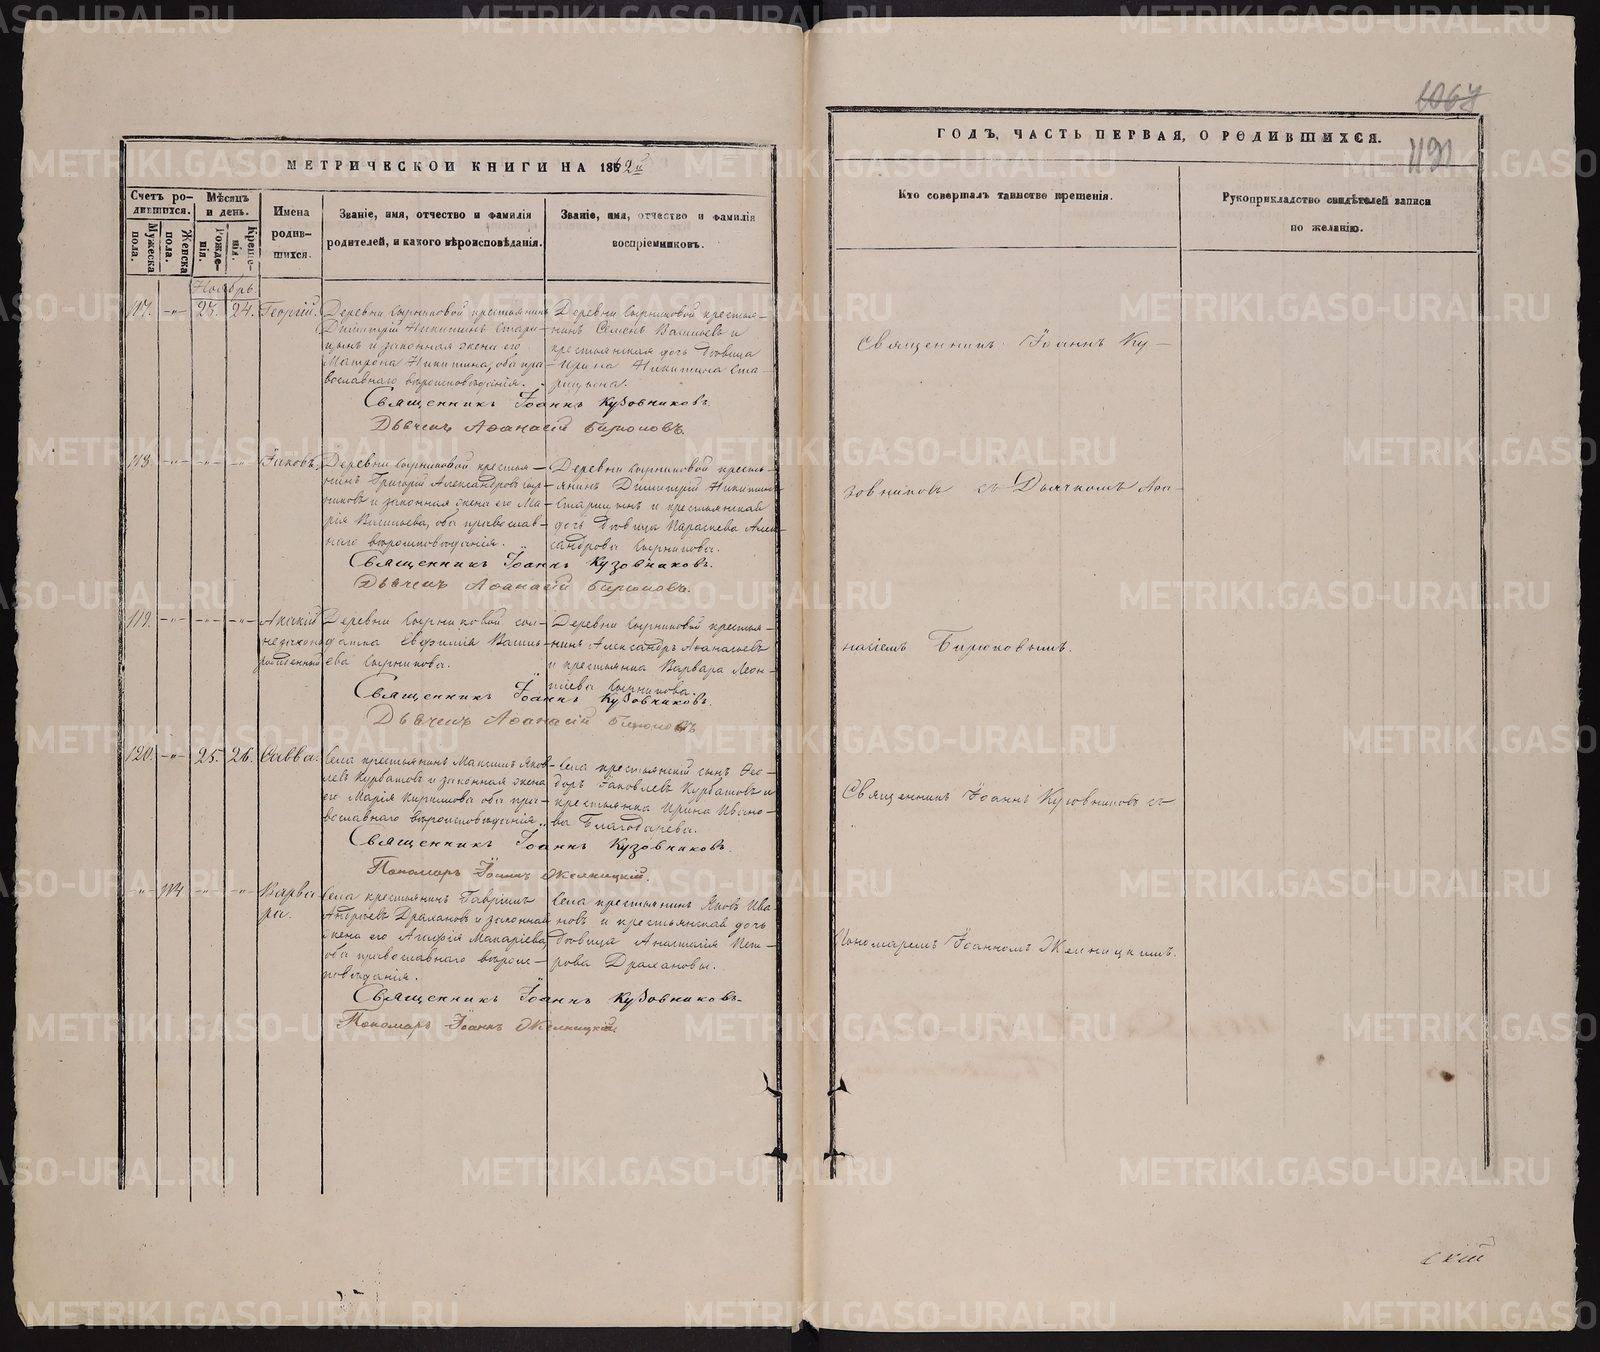 МЕТРИЧЕСКОЙ КНИГИ НА 1862й
Счетъ ро-
дившихся.
Мужеска
пола.
Женска
пола.
Мѣсяцъ
и день.
Рожде-
нія.
Креще-
нія.
Имена
родив-
шихся.
Званіе, имя, отчество и фамилія
родителей, и какого вѣроисповѣданія.
Званіе, имя, отчество и фамилія
воспріемниковъ.
Ноябрь.
117. -"- 23. 24. Георгій.
Деревни Сырниковой крестьянинъ
Димитрій Никитинъ Стари-
цынъ и законная жена его
Матрона Никитина, оба пра-
вославнаго вѣроисповѣданія.
Деревни Сырниковой крестья-
нинъ Семенъ Васильевъ и
крестьянская дочь дѣвица
Ирина Никитина Ста-
рицына.
Священникъ Іоаннъ Кузовниковъ.
Дьячекъ Аѳанасій Бирюковъ.
118. -"- -"- -"- Іаковъ.
Деревни Сырниковой крестья-
нинъ Григорій Александровъ Сыр-
никовъ и законная жена его Ма-
рія Васильева, оба православ-
наго вѣроисповѣданія.
Деревни Сырниковой кресть-
янинъ Димитрій Никитинъ
Старицынъ и крестьянская
дочь дѣвица Параскева Алек-
сандрова Сырникова.
Священникъ Іоаннъ Кузовниковъ.
Дьячекъ Аѳанасій Бирюковъ.
119. -"- -"- -"- Акакій
незаконно
рожденный
Деревни Сырниковой сол-
датка Евфимія Василь-
ева Сырникова.
Деревни Сырниковой крестья-
нинъ Александръ Аѳанасьевъ
и крестьянка Варвара Леон-
тіева Сырникова.
Священникъ Іоаннъ Кузовниковъ.
Дьячекъ Аѳанасій Бирюковъ
120. -"- 25. 26. Савва.
Села крестьянинъ Максимъ Яков-
левъ Курбатовъ и законная жена
его Марія Кирилова оба пра-
вославнаго вѣроисповѣданія.
Села крестьянскій сынъ Ѳео-
доръ Іаковлевъ Курбатовъ и
крестьянка Ирина Ивано-
ва Благодарева.
Священникъ Іоаннъ Кузовниковъ.
Пономарь Іоаннъ Желницкій.
-"- 114 -"- -"- Варва
ра.
Села крестьянинъ Гавріилъ
Андреевъ Драхановъ и законная
жена его Агафія Макаріева,
оба православнаго вѣроис-
повѣданія.
Села крестьянинъ Яковъ Ива
новъ и крестьянская дочь
дѣвица Анастасія Пет-
рова Драхановы.
Священникъ Іоаннъ Кузовниковъ
Пономарь Іоаннъ Желницкій
1067
491
ГОДЪ, ЧАСТЬ ПЕРВАЯ, О РОДИВШИХСЯ.
Кто совершалъ таинство крещенія.
Рукоприкладство свидѣтелей записи
по желанію.
Священникъ Іоаннъ Ку-
зовниковъ съ Дьячкомъ Аѳа-
насіемъ Бирюковымъ.
Священникъ Іоаннъ Кузовниковъ съ
Пономаремъ Іоанномъ Желницкимъ.
скій
METRIKI.GASO-URAL.RU